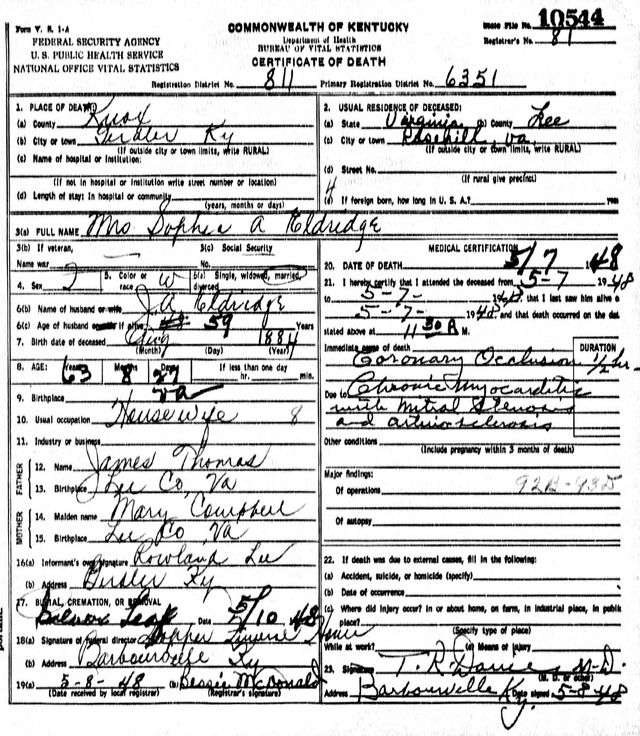 Form V. S. 1-A
COMMONWEALTH OF KENTUCKY
State File No. 10544
FEDERAL SECURITY AGENCY
Department of Health
Registrar's No. 81
U. S. PUBLIC HEALTH SERVICE
BUREAU OF VITAL STATISTICS
NATIONAL OFFICE VITAL STATISTICS
CERTIFICATE OF DEATH
Registration District No. 811 Primary Registration District No. 6351
1. PLACE OF DEATH
(a) County Knox
(b) City or town Ky
(If outside city or town limits, write RURAL)
(c) Name of hospital or institution:
(If not in hospital or institution write street number or location)
(d) Length of stay: In hospital or community
(years, months or days)
2. USUAL RESIDENCE OF DECEASED:
(a) State Virginia (b) County Lee
(c) City or town Rosehill, Va.
(If outside city or town limits, write RURAL)
(d) Street No.
(If rural give precinct)
4
If foreign born, how long in U. S. A.?
3(a) FULL NAME Mrs Sophia A Eldridge
3(b) If veteran, 3(c) Social Security
Name war No.
4. Sex 5. Color or race W 6(a) Single, widowed, married, divorced
6(b) Name of husband or wife J.A Eldridge
6(c) Age of husband or wife if alive 59 Years
7. Birth date of deceased Aug 1884
(Month) (Day) (Year)
8. AGE: Years Months Days If less than one day
63 8 27 hr. min.
9. Birthplace Va
10. Usual occupation Housewife 8
11. Industry or business
FATHER
12. Name James Thomas
13. Birthplace Lee Co, Va
MOTHER
14. Maiden name Mary Campbell
15. Birthplace Lee Co, Va
16(a) Informant's own signature Rowland Lee
(b) Address Ky
17. BURIAL, CREMATION, OR REMOVAL
Date 5/10 48
18(a) Signature of funeral director Hopper Funeral Home
(b) Address Barbourville Ky
19(a) 5-8-48 (b) Bessie McDonald
(Date received by local registrar) (Registrar's signature)
MEDICAL CERTIFICATION
20. DATE OF DEATH 5/7 1948
21. I hereby certify that I attended the deceased from 5-7 1948
to 5-7- 1948, that I last saw him alive o
5-7- 1948, and that death occurred on the dat
stated above at 11 30 A M.
Immediate cause of death DURATION
Coronary Occlusion 1/2 hr.
Due to Chronic myocarditis
with mitral stenosis
and arteriosclerosis
Other conditions
(Include pregnancy within 3 months of death)
Major findings:
92B-93D
Of operations
Of autopsy
22. If death was due to external causes, fill in the following:
(a) Accident, suicide, or homicide (specify)
(b) Date of occurrence
(c) Where did injury occur? In or about home, on farm, in industrial place, in public
place?
(Specify type of place)
While at work? (e) Means of injury
23. Signature T. R. Davies M.D.
(M. D. or other)
Address Barbourville Ky. Date signed 5-8-48